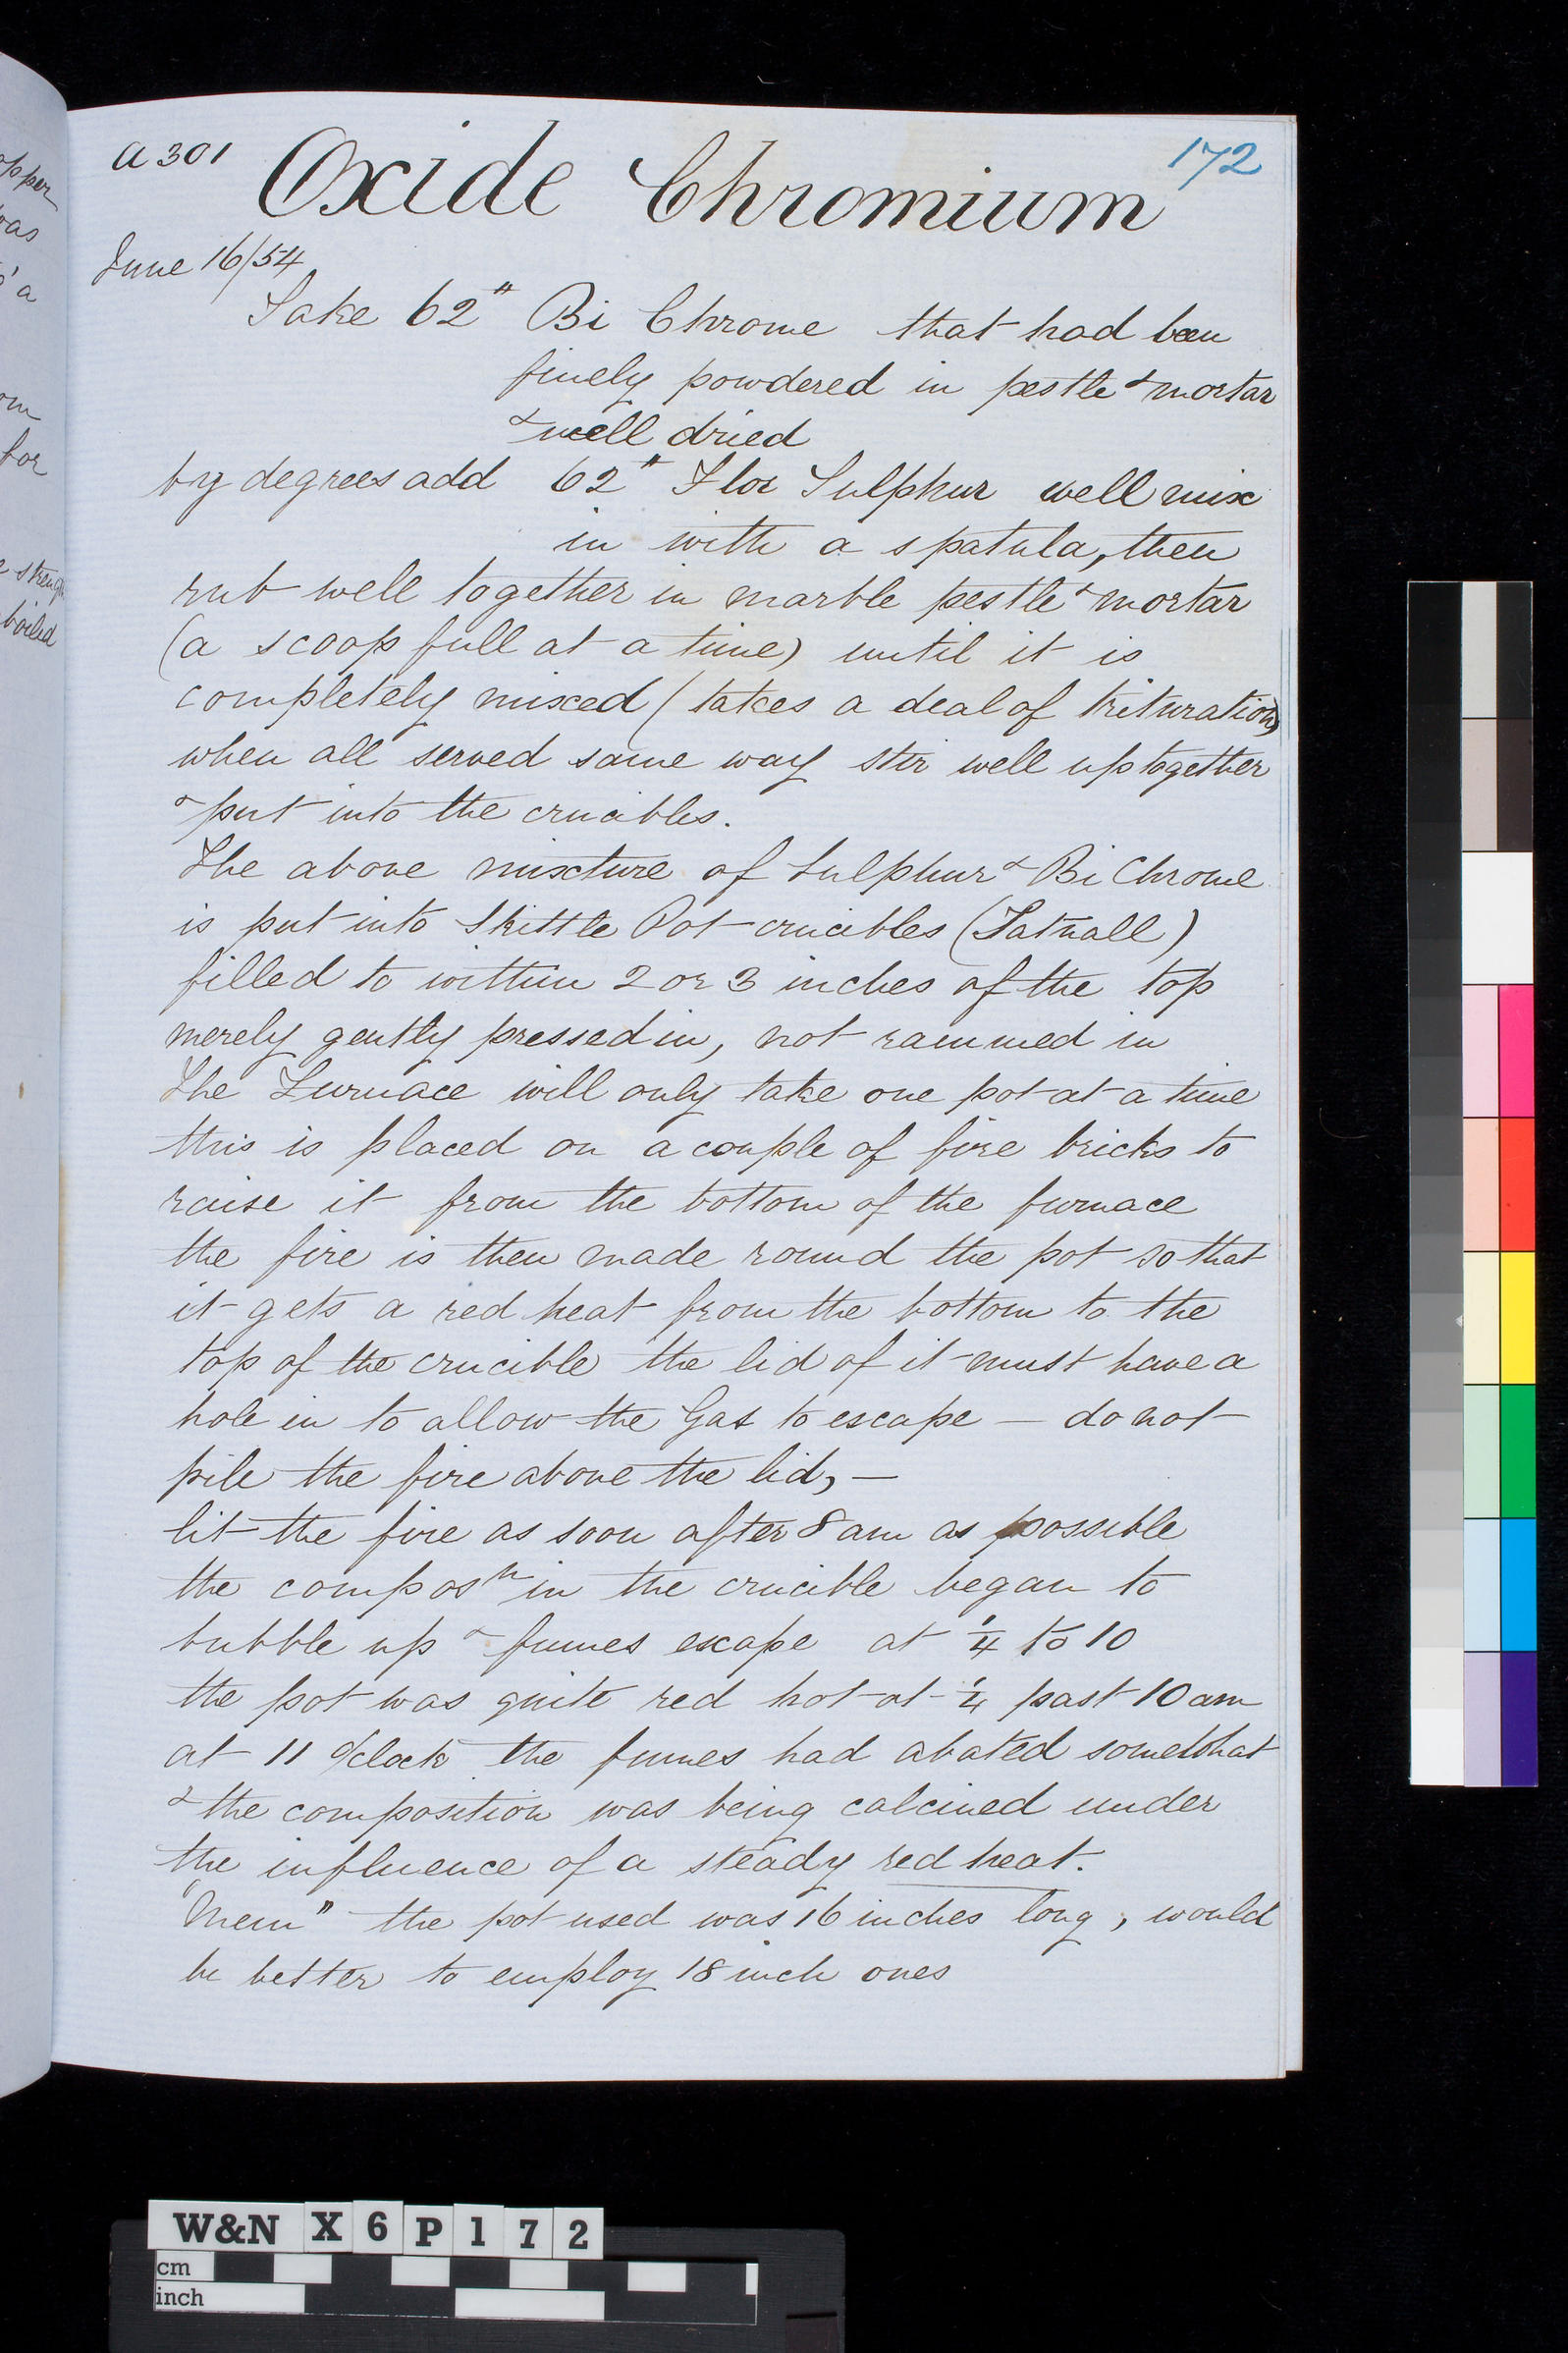 opper
was
o' a
om
for
e streng
boiled
a 301
172
Oxide Chromium
June 16/54
Take 62" Bi Chrome that had been
finely powdered in pestle & mortar
& well dried
by degrees add 62" Flor Sulphur well mix
in with a spatula, then
rub well together in marble pestle & mortar
(a scoop full at a time) until it is
completely mixed (takes a deal of trituration)
when all served same way stir well up together
& put into the crucibles.
The above mixture of Sulphur & Bi Chrome
is put into Skittle Pot crucibles (Tatnall)
filled to within 2 or 3 inches of the top
merely gently pressed in, not rammed in
The Furnace will only take one pot at a time
this is placed on a couple of fire bricks to
raise it from the bottom of the furnace
the fire is then made round the pot so that
it gets a red heat from the bottom to the
top of the crucible the lid of it must have a
hole in to allow the Gas to escape — do not
pile the fire above the lid, —
lit the fire as soon after 8 am as possible
the composn in the crucible began to
bubble up & fumes escape at ¼ to 10
the pot was quite red hot at ¼ past 10 am
at 11 o'clock the fumes had abated somewhat
& the composition was being calcined under
the influence of a steady red heat.
"Mem" the pot used was 16 inches long, would
be better to employ 18 inch ones
W&N X6P172
cm
inch